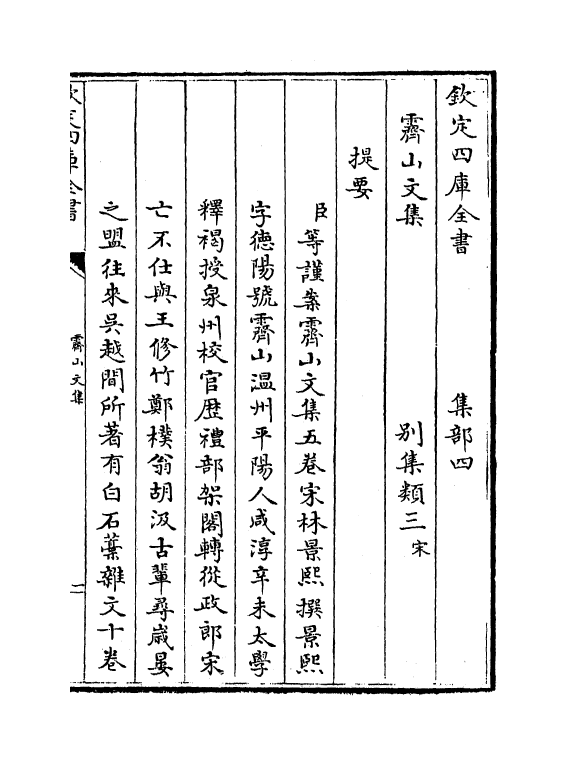 欽定四庫全書　集部四
霽山文集　別集類三宋
提要
臣等謹案霽山文集五巻宋林景熙撰景熙
字德陽號霽山温州平陽人咸淳辛未太學
釋褐授泉州校官歴禮部架閣轉從政郎宋
亡不仕與王修竹鄭樸翁胡汲古輩尋歳晏
之盟往來吳越間所著有白石藁雜文十卷
欽定四庫全書
霽山文集